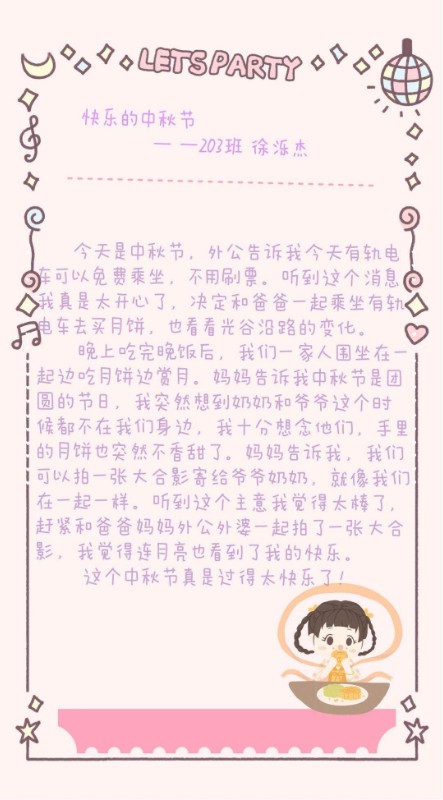 LETS PARTY
快乐的中秋节
— —203班 徐泺杰
今天是中秋节，外公告诉我今天有轨电
车可以免费乘坐，不用刷票。听到这个消息
我真是太开心了，决定和爸爸一起乘坐有轨
电车去买月饼，也看看光谷沿路的变化。
晚上吃完晚饭后，我们一家人围坐在一
起边吃月饼边赏月。妈妈告诉我中秋节是团
圆的节日，我突然想到奶奶和爷爷这个时
候都不在我们身边，我十分想念他们，手里
的月饼也突然不香甜了。妈妈告诉我，我们
可以拍一张大合影寄给爷爷奶奶，就像我们
在一起一样。听到这个主意我觉得太棒了，
赶紧和爸爸妈妈外公外婆一起拍了一张大合
影，我觉得连月亮也看到了我的快乐。
这个中秋节真是过得太快乐了！